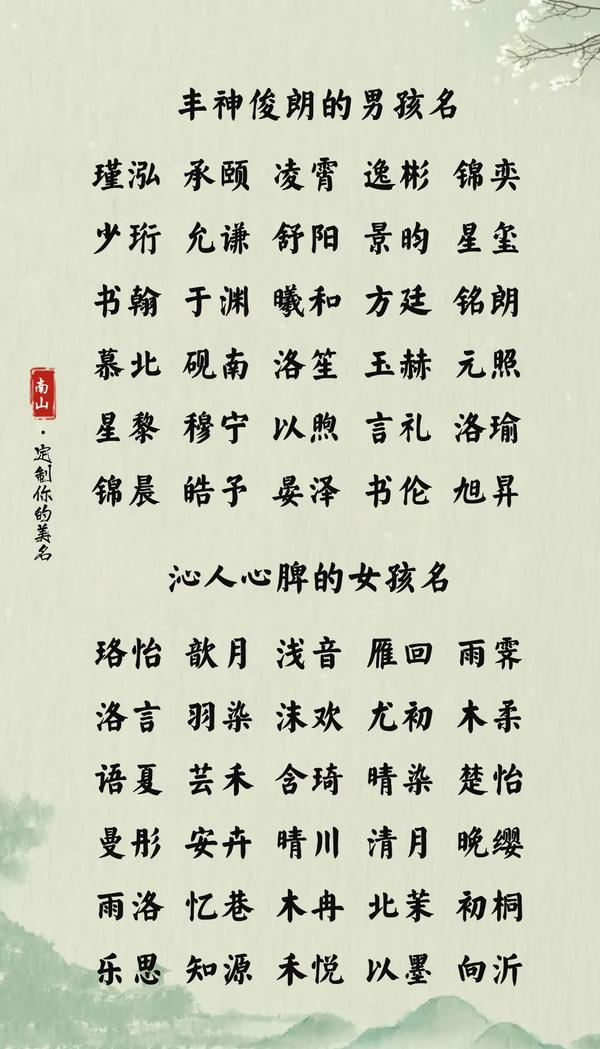 丰神俊朗的男孩名
瑾泓 承颐 凌霄 逸彬 锦奕
少珩 允谦 舒阳 景昀 星玺
书翰 于渊 曦和 方廷 铭朗
慕北 砚南 洛笙 玉赫 元照
星黎 穆宁 以煦 言礼 洛瑜
锦晨 皓予 晏泽 书伦 旭昇
南山
·定制你的美名
沁人心脾的女孩名
珞怡 歆月 浅音 雁回 雨霁
洛言 羽染 沫欢 尤初 木柔
语夏 芸禾 含琦 晴染 楚怡
曼彤 安卉 晴川 清月 晚缨
雨洛 忆巷 木冉 北茉 初桐
乐思 知源 禾悦 以墨 向沂